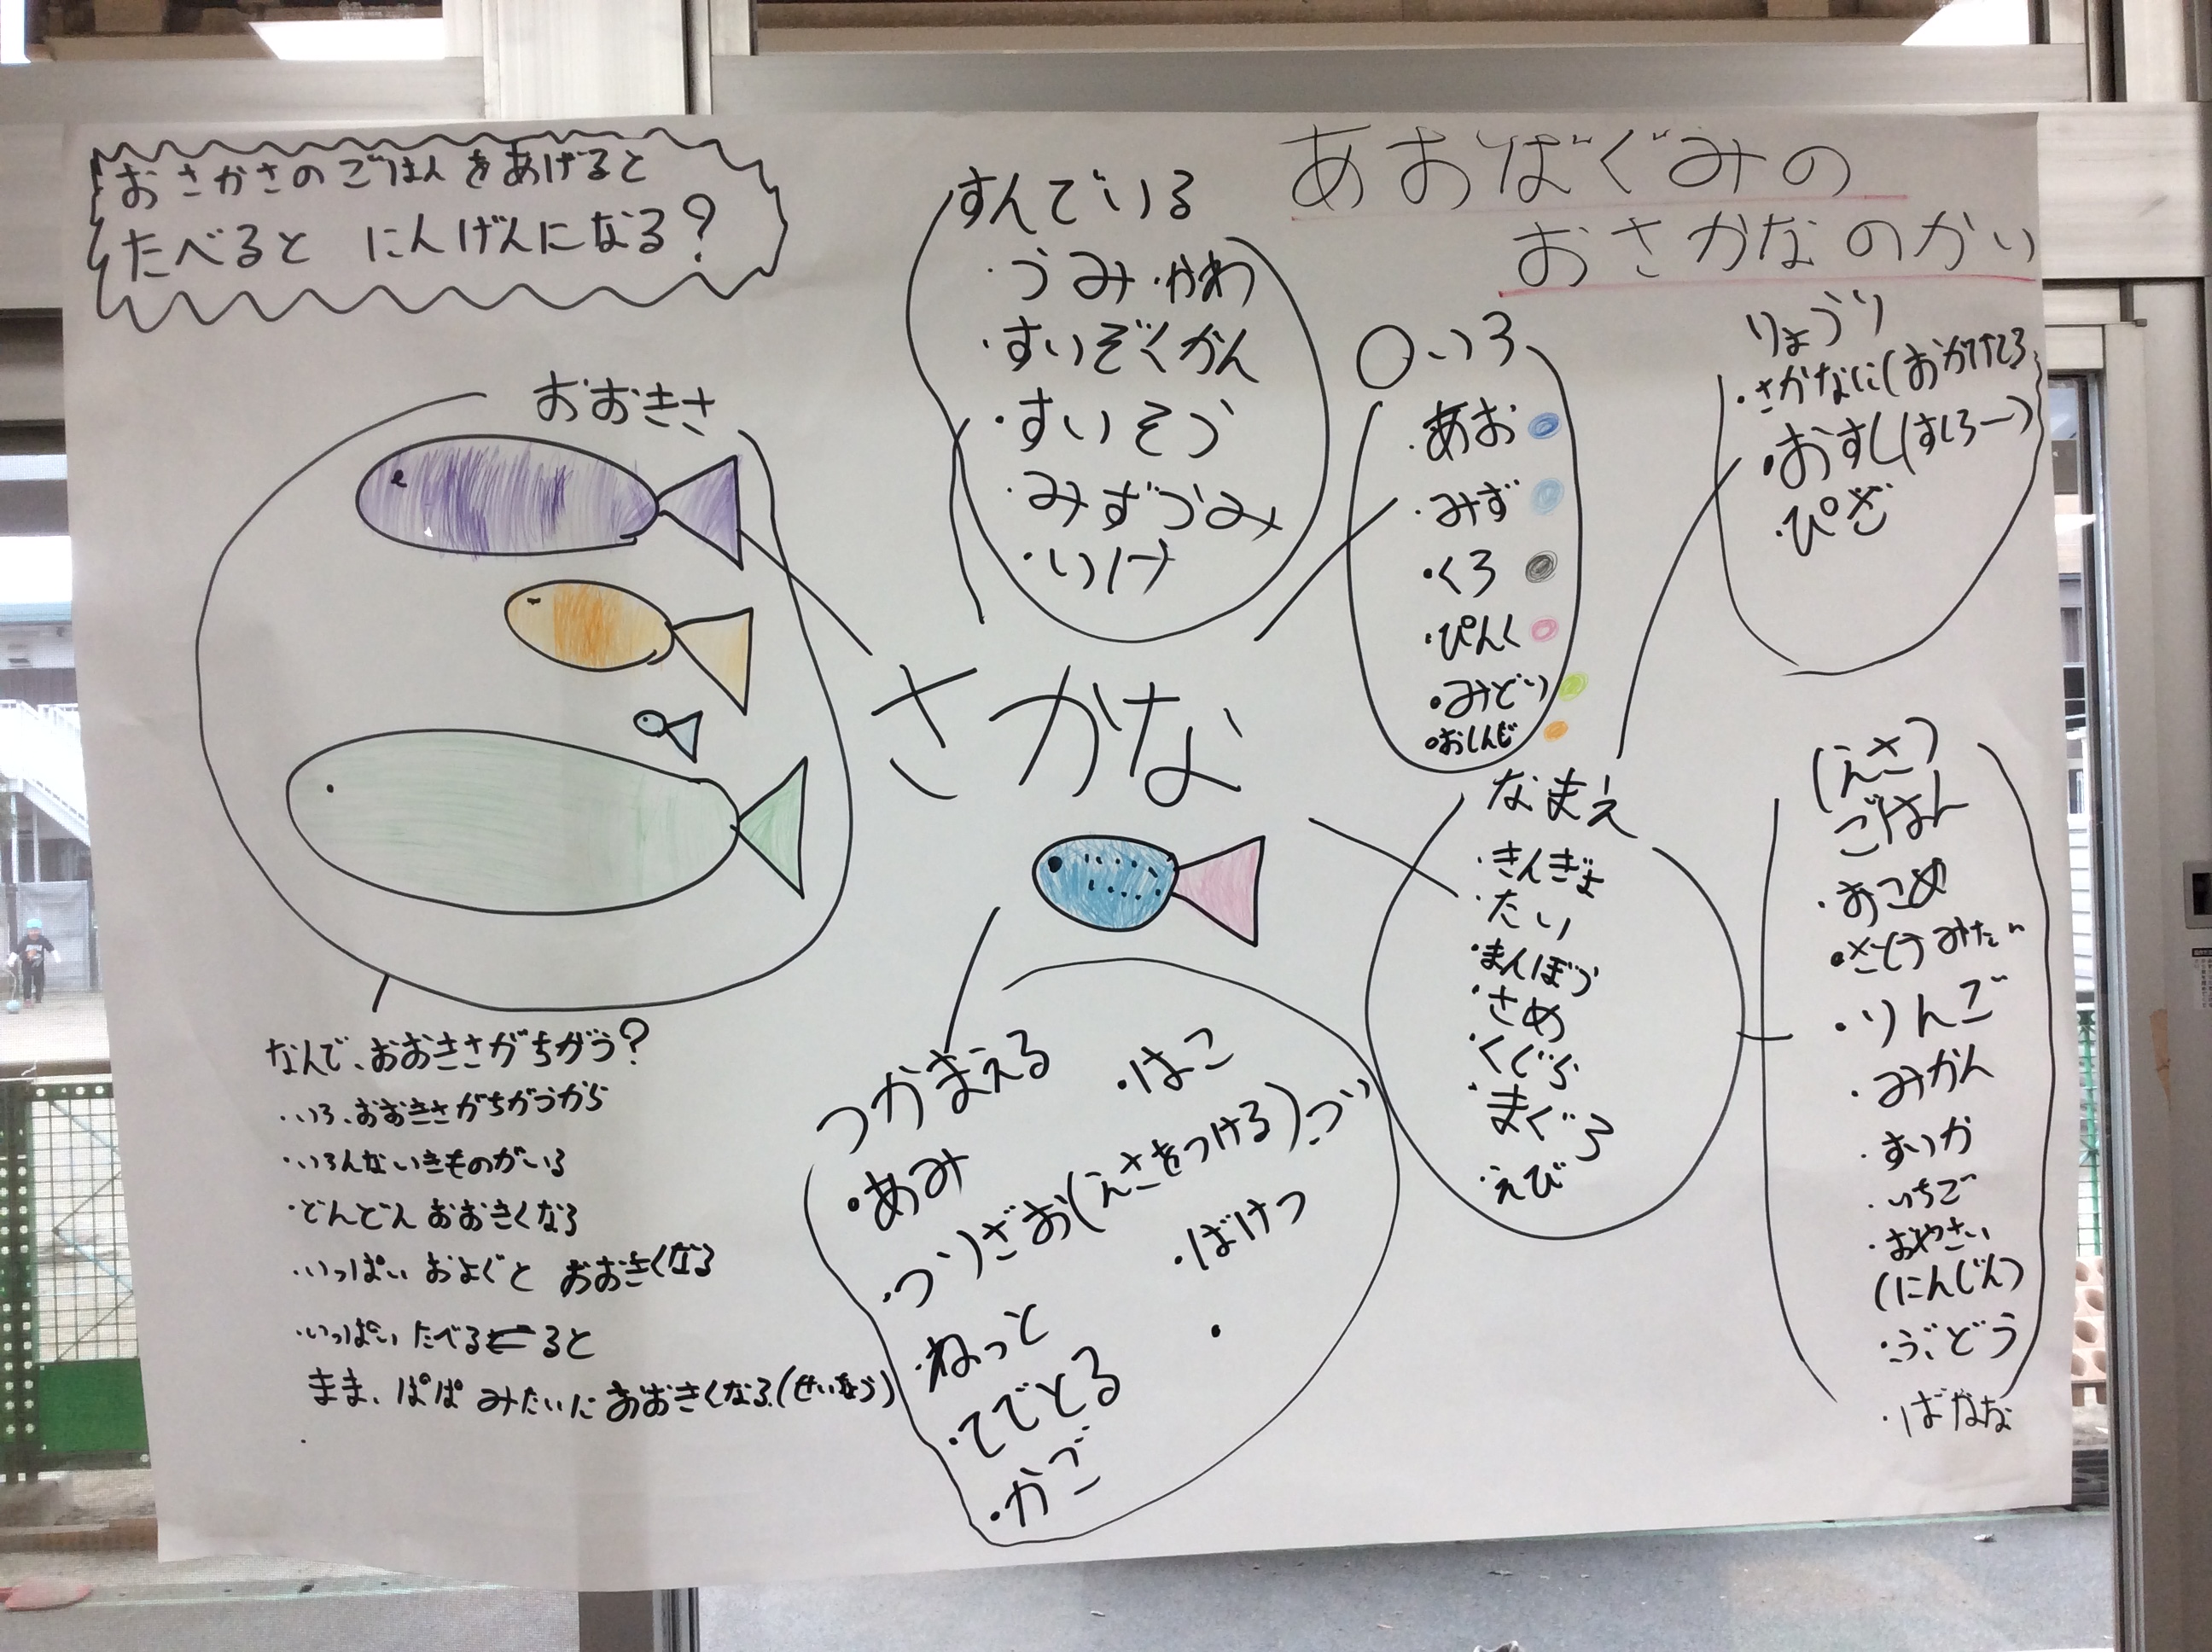 あおばぐみの
おさかなのかい
おさかさのごはんをあげると
たべると にんげんになる?
さかな
おおきさ
なんで、おおきさがちがう?
・いろ、おおきさがちがうから
・いろんないきものがいる
・どんどん おおきくなる
・いっぱい およぐと おおきくなる
・いっぱい たべると
まま、ぱぱ みたいに おおきくなる
すんでいる
・うみ・かわ
・すいぞくかん
・すいそう
・みずうみ
・いけ
○いろ
・あお
・みず
・くろ
・ぴんく
・みどり
・おれんじ
りょうり
・さかなに
・おすし(すしろー)
・ぴざ
なまえ
・きんぎょ
・たい
・まんぼう
・さめ
・くじら
・まぐろ
・えび
(えさ)
ごはん
・おこめ
・さとうみたい
・りんご
・みかん
・すいか
・いちご
・おやさい
(にんじん)
・ぶどう
・ばなな
つかまえる
・あみ
・つりざお(えさをつける)
・ねっと
・てでとる
・かご
・はこ
・ばけつ